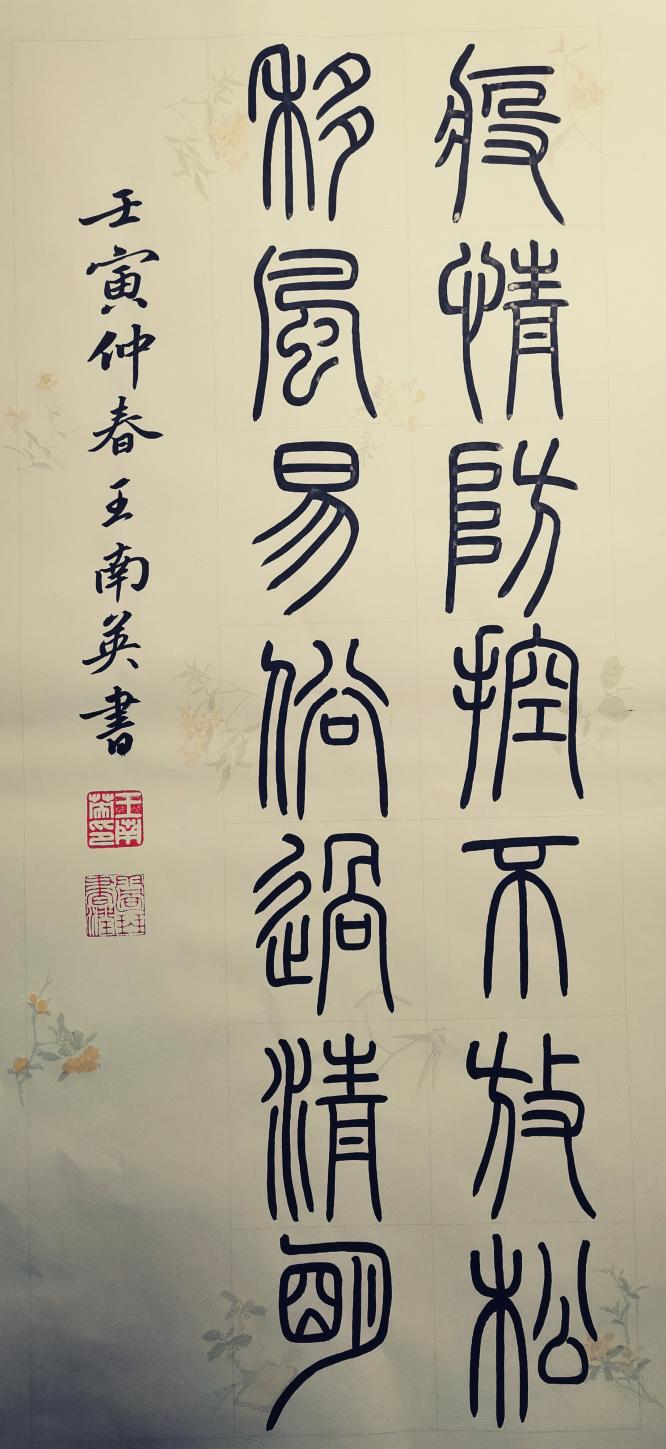 疫情防控不放松
移風易俗過清明
壬寅仲春王南英書
王南英印